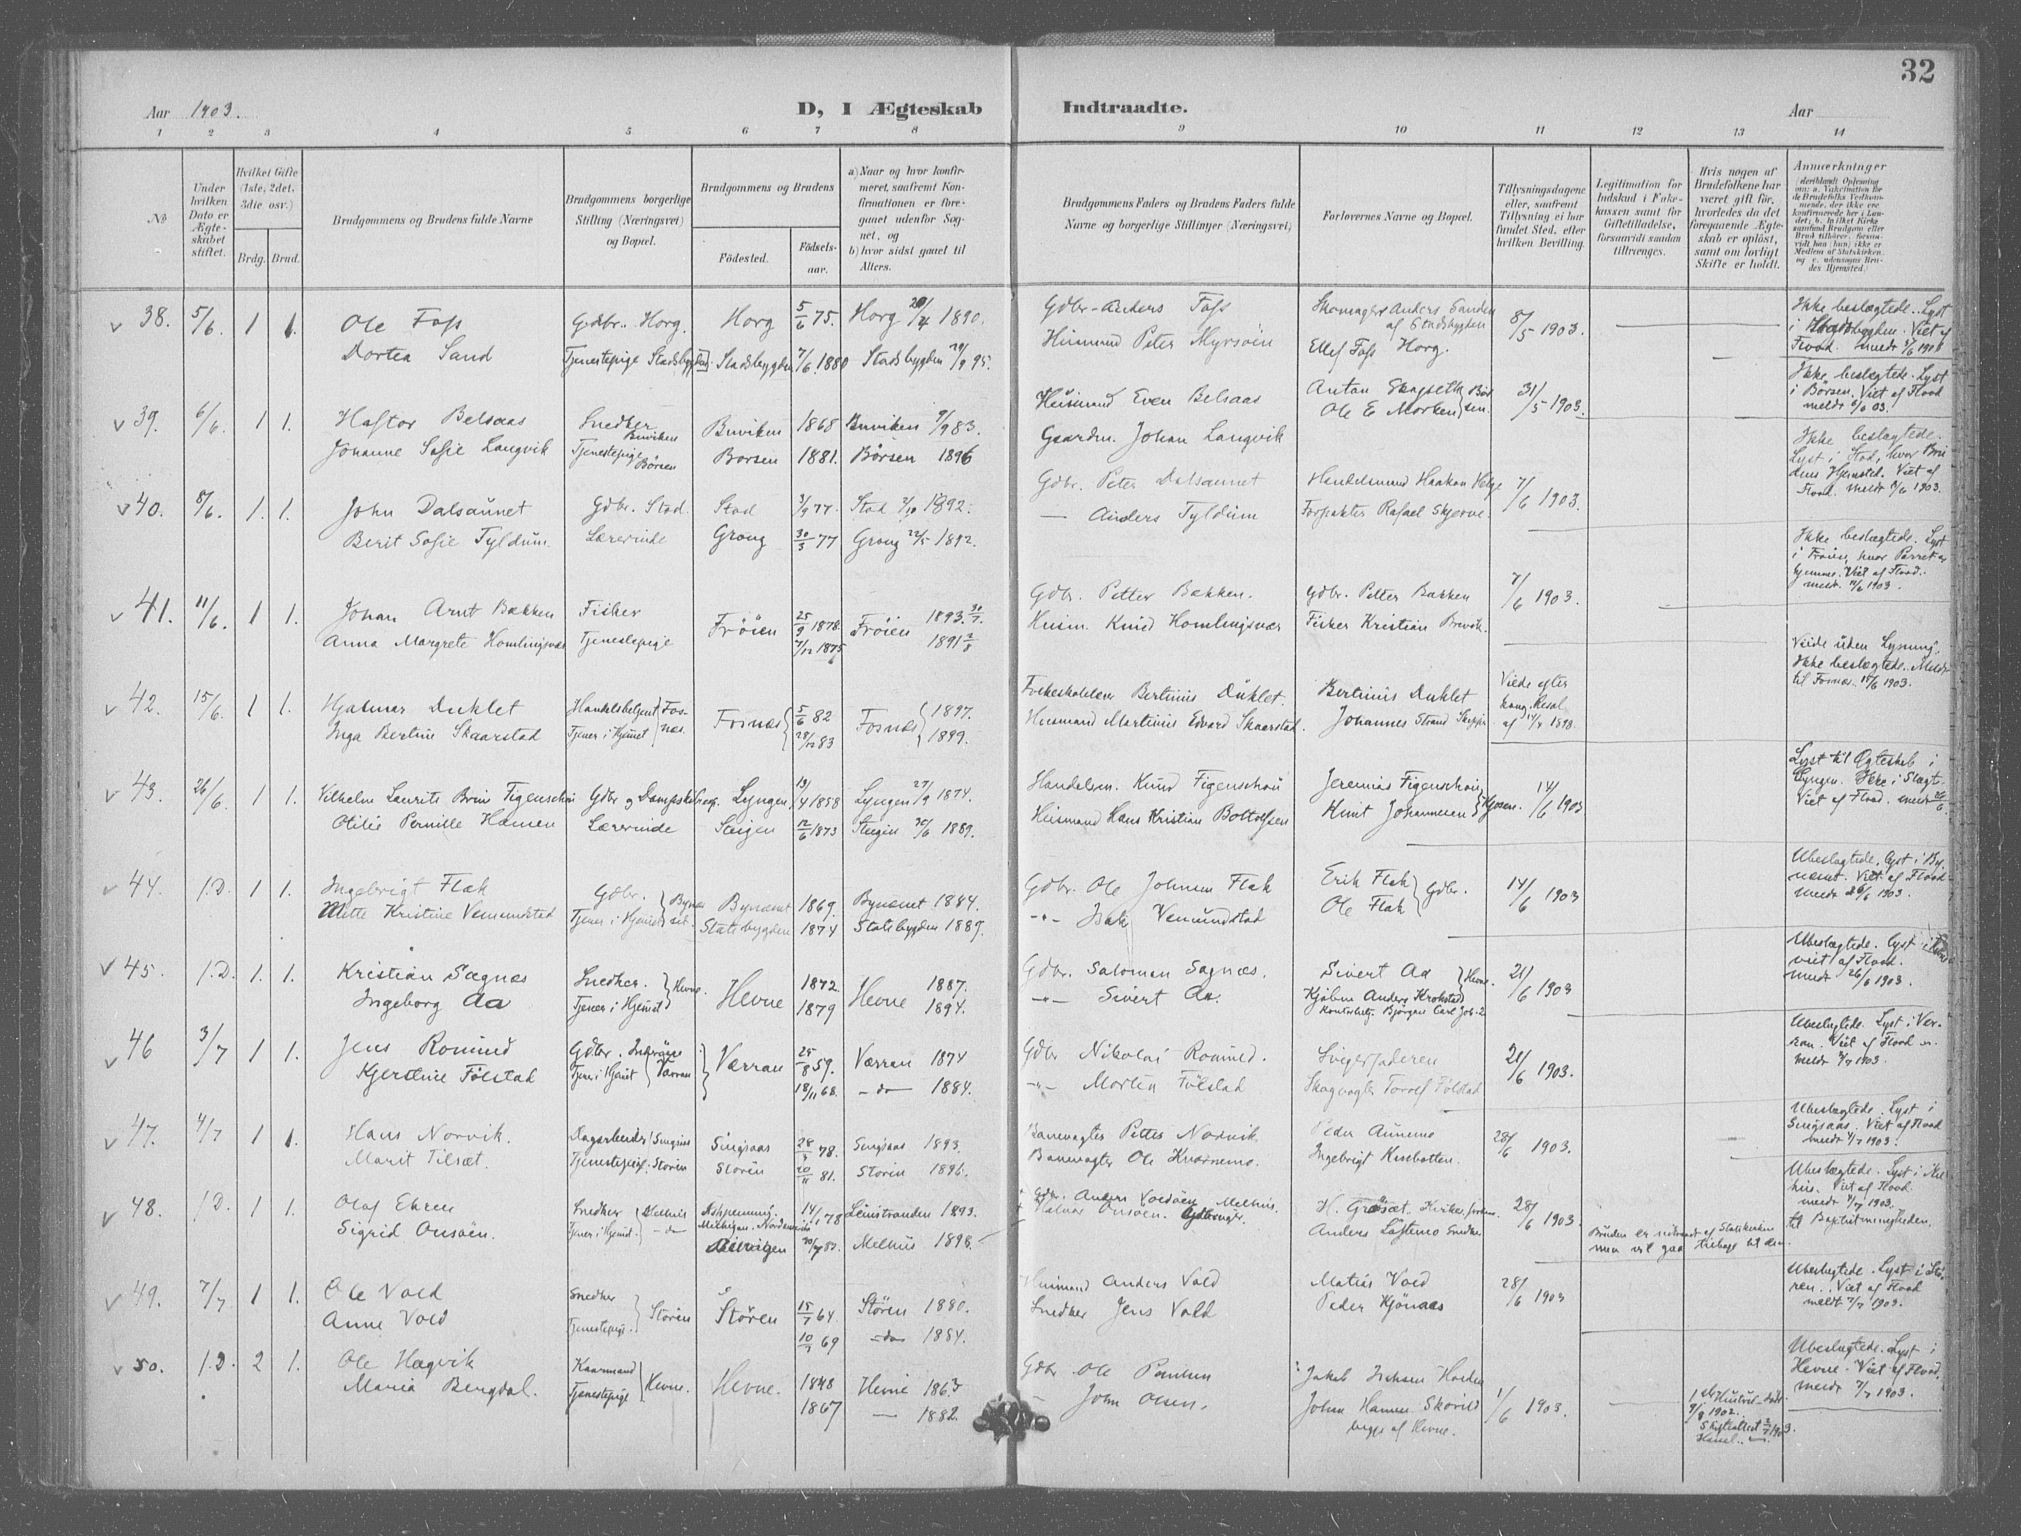 32
Aar 1903.
D, I Ægteskab Indtraadte.
Aar
1 2 3 4 5 6 7 8 9 10 11 12 13 14
No
Under hvilken Dato er Ægteskabet stiftet.
Hvilket Gifte (1ste, 2det, 3die osv.)
Brdg. Brud.
Brudgommens og Brudens fulde Navne
Brudgommens borgerlige Stilling (Næringsvei) og Bopæl.
Brudgommens og Brudens
Födested. Födsels-aar.
a) Naar og hvor konfirmeret, saafremt Konfirmationen er foregaaet udenfor Sognet, og
b) hvor sidst gaaet til Alters.
Brudgommens Faders og Brudens Faders fulde Navne og borgerlige Stillinger (Næringsvei)
Forlovernes Navne og Bopæl.
Tillysningsdagene eller, saafremt Tillysning ei har fundet Sted, efter hvilken Bevilling.
Legitimation for Indskud i Enkekassen samt for Giftetilladelse, forsaavidt saadan tiltrænges.
Hvis nogen af Brudefolkene har været gift för, hvorledes da det foregaaende Ægteskab er oplöst, samt om lovligt Skifte er holdt.
Anmærkninger
38. 5/6. 1 1. Ole Foss Gdbr. Horg. Horg 5/6 75. Horg 20/4 1890. Gdbr. Anders Foss Skomager Anders Sanden 8/5 1903. Ikke beslægtede. Lyst
Dortea Sand Tjenestepige Stadsbygden Stadsbygden 7/6 1880 Stadsbygden 95. Husmand Peter Myrsöen af Stadsbygden Ellef Foss Horg. i Stadsbygden. Viet af Flood.
39. 6/6. 1 1. Haftor Belsaas Snedker Buviken Buviken 1868 Buviken 9/9 83. Husmand Even Belsaas Anton Skogseth 31/5 1903. Ikke beslægtede. Lyst
Johanne Sofie Langvik Tjenestepige Börsen Börsen 1881. Börsen 1896 Gaardm. Johan Langvik Ole E Morken Börsen. i Börsen. Viet af Flood meldt 6/6 03.
40. 8/6. 1. 1. John Dalsaunet Gdbr. Stod. Stod 3/9 77. Stod 1892. Gdbr. Peter Dalsaunet Handelsmand Haakon 7/6 1903. Ikke beslægtede.
Berit Sofie Tyldum. Lærerinde Grong 30/3 77 Grong 22/5 1892. — Anders Tyldum Forpakter Rafael Skjerve. Lyst i Stod, hvor Brudens Hjemsted. Viet af Flood. meldt 9/6 1903.
41. 11/6. 1 1. Johan Arnt Bækken Fisker Fröien 25/9 1878. Fröien 1893 30/7. Gdbr. Petter Bækken. Gdbr. Petter Bækken 7/6 1903. Ikke beslægtede. Lyst
Anna Margrete Homlingsvær Tjenestepige 7/12 1875 1891 Husm. Knud Homlingsvær Fisker Kristian Brevik. i Fröien, hvor Parret er hjemme. Viet af Flood. meldt 11/6 1903.
42. 15/6. 1 1. Hjalmar Duklet Handelsbetjent Fosnæs. Fosnæs 5/6 82 Fosnæs 1897. Bertinus Duklet. Bertinus Duklet Viede efter kong. Resol. Viede uden Lysning.
Inga Bertine Skaarstad Tjener i Hjemmet 28/12 83 1899. Husmand Martinus Edvard Skaarstad. Johannes Strand af 1898. Ikke beslægtede. Meldt til Fosnæs. 15/6 1903.
43. 26/6. 1 1. Vilhelm Laurits Figenschou Gdbr og Lyngen 13/4 1858 Lyngen 27/9 1874. Handelsm. Knud Figenschou Jeremias Figenschou 14/6 1903 Lyst til Ægteskab i
Otilie Pernille Hansen Lærerinde Steigen 12/6 1873 Steigen 1889. Husmand Hans Kristian Bottolfsen Knut Johannesen Lyngen. Ikke i Slægt. Viet af Flood. meldt 26/6.
44. 1.D. 1 1. Ingebrigt Flak Gdbr. Bynæsset. Bynæsset 1869. Bynæsset 1884. Gdbr. Ole Johnsen Flak Erik Flak 14/6 1903 Ubeslægtede. Lyst i Bynæsset.
Mette Kristine Vemundstad Tjener i Hjemmet Stadsbygden 1874 Stadsbygden 1889. -"- Isak Vemundstad Ole Flak Gdbr. Viet af Flood. Meldt 26/6 1903.
45. 1.D. 1. 1. Kristian Sagnæs Snedker. Hevne. Hevne 1872 Hevne 1887. Gdbr. Salomon Sagnæs. Sivert Aa Hevne. 21/6 1903 Ubeslægtede. Lyst i
Ingeborg Aa Tjener i Hjemmet 1879 1894. -"- Sivert Aa. Kjöbm. Anders Krokstad viet af Flood. Meldt 26/6 1903.
46 3/7 1 1. Jens Romuld Gdbr. Inderöen Værran 25/8 59. Værran 1874 Gdbr Nikolai Romuld. Svigerfaderen 21/6 1903. Ubeslægtede. Lyst i Verran.
Kjerstine Fölstad Tjener i Hjemmet Værran 18/11 68. — do — 1884. -"- Morten Fölstad Skogvogter Torolf Fölstad Viet af Flood. meldt 3/7 1903.
47. 4/7 1 1. Hans Norvik. Dagarbeider Singsaas Singsaas 78. Singsaas 1893. Banevogter Petter Norvik Peder Aunemo 28/6 1903. Ubeslægtede. Lyst i
Marit Tilset. Tjenestepige. Stören Stören 20/11 81. Stören 1896. Banevogter Ole Kvernemo. Ingebrigt Singsaas. Viet af Flood meldt 4/7 1903.
48. 1.D. 1 1. Olaf Ehren Snedker Melhus Ishpeming, Michigan. Nordamerika 14/1 78 Leinstranden 1893. Gdbr. Anders Melhus. H. Græsæt. 28/6 1903. Ubeslægtede. Lyst i Melhus. Viet af Flood.
Sigrid Onsöien. Tjener i Hjemmet. — do Melhus 1898. Halvor Onsöien. Anders Löftemo Snedker Bruden er udtraadt af Statskirken men vil gaa tilbage til den. meldt 4/7 1903. til Baptistmenigheden.
49. 7/7 1 1. Ole Vold Snedker Stören Stören 15/7 64. Stören 1880. Husmand Anders Vold Matias Vold 28/6 1903 Ubeslægtede. Lyst i Stören.
Anne Vold Tjenestepige. 10/7 69 — do — 1884. Snedker Jens Vold Peder Kjönaas Viet af Flood meldt 7/7 1903.
50. 1.D. 2 1. Ole Hagvik Kaarmand Hevne. Hevne. 1848 Hevne 1863 Gdbr Ole Paulsen Jakob Isaksen 1/6 1903. 1ste Hustru död 1902. Ubeslægtede. Lyst i
Maria Bergdal. Tjenestepige 1867 — 1882. — John Olsen. John Hansen begge af Hevne. Hevne. Viet af Flood. meldt 7/7 1903.